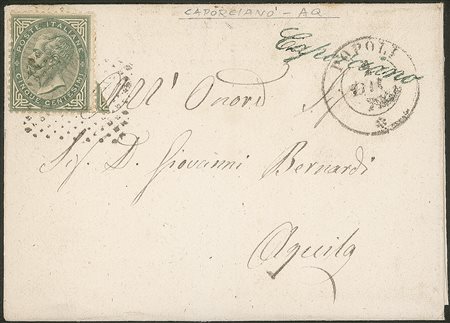 CAPORCIANO - AQ
POSTE ITALIANE
CINQUE CENTESIMI
Caporciano
POPOLI
All' Onor
Sig. D. Giovanni Bernardi
Aquila